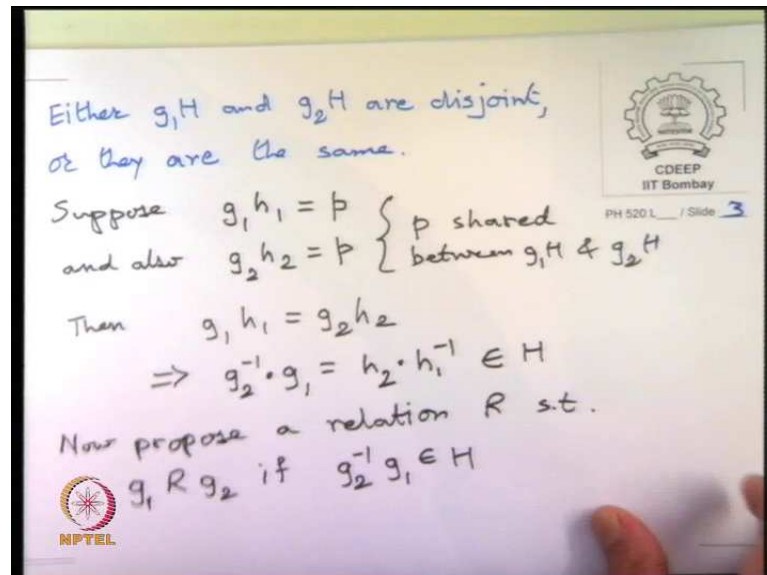 Either g₁H and g₂H are disjoint,
or they are the same.
CDEEP
IIT Bombay
PH 520 L___ / Slide 3
Suppose g₁h₁ = p { p shared
and also g₂h₂ = p { between g₁H & g₂H
Then g₁h₁ = g₂h₂
=> g₂⁻¹ · g₁ = h₂ · h₁⁻¹ ∈ H
Now propose a relation R s.t.
g₁ R g₂ if g₂⁻¹ g₁ ∈ H
NPTEL